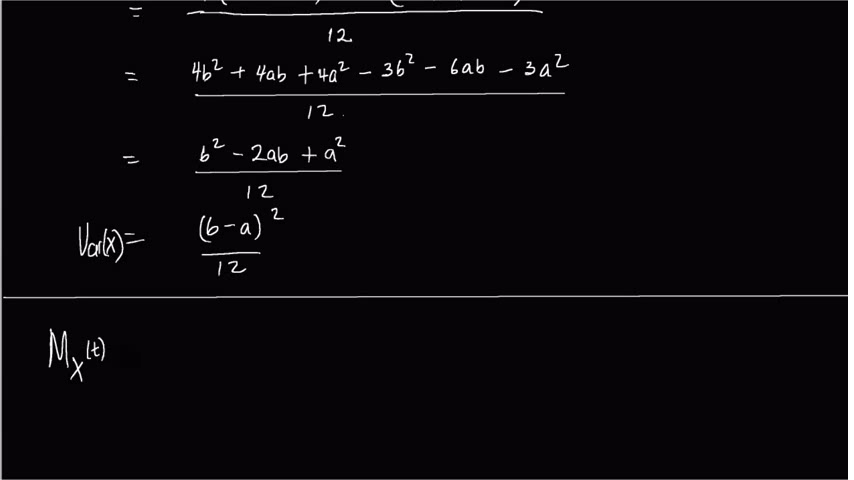 =
12
= 4b² + 4ab + 4a² - 3b² - 6ab - 3a²
12
= b² - 2ab + a²
12
Var(x) = (b-a)²
12
M_X(t)